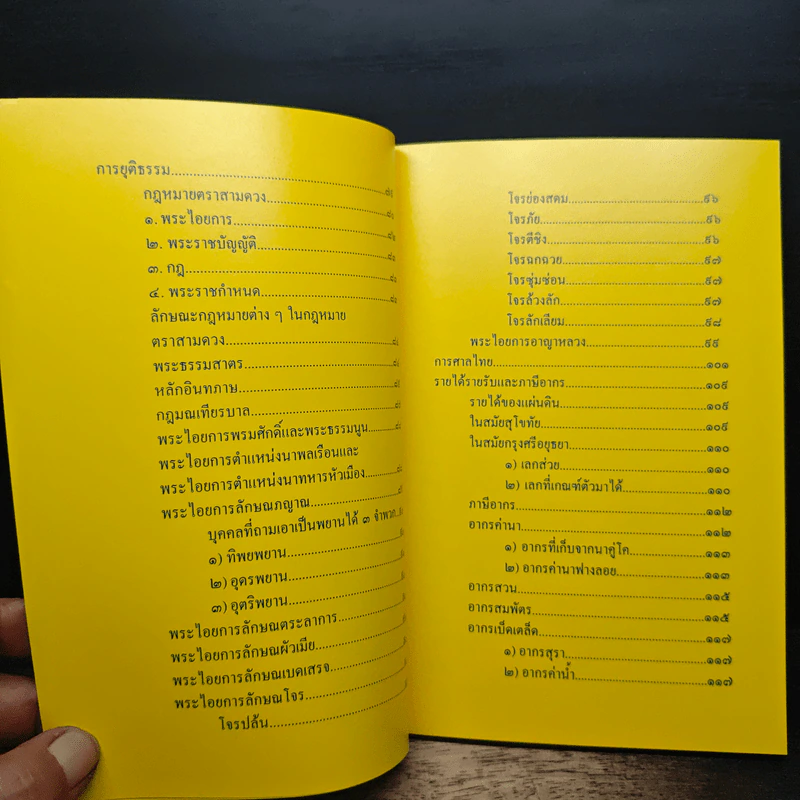 การยุติธรรม
กฎหมายตราสามดวง
๑. พระไอยการ
๒. พระราชบัญญัติ
๓. กฎ
๔. พระราชกำหนด
ลักษณะกฎหมายต่าง ๆ ในกฎหมาย
ตราสามดวง
พระธรรมสาตร
หลักอินทภาษ
กฎมณเทียรบาล
พระไอยการพรมศักดิ์และพระธรรมนูน
พระไอยการตำแหน่งนาพลเรือนและ
พระไอยการตำแหน่งนาทหารหัวเมือง
พระไอยการลักษณภญาณ
บุคคลที่ถามเอาเป็นพยานได้ ๓ จำพวก
๑) ทิพยพยาน
๒) อุดรพยาน
๓) อุตริพยาน
พระไอยการลักษณตระลาการ
พระไอยการลักษณผัวเมีย
พระไอยการลักษณเบดเสรจ
พระไอยการลักษณโจร
โจรปล้น
โจรย่องสดม....................๙๖
โจรภัย....................๙๖
โจรตีชิง....................๙๖
โจรฉกฉวย....................๙๗
โจรซุ่มซ่อน....................๙๗
โจรล้วงลัก....................๙๗
โจรลักเลียม....................๙๘
พระไอยการอาญาหลวง....................๙๙
การศาลไทย....................๑๐๑
รายได้รายรับและภาษีอากร....................๑๐๙
รายได้ของแผ่นดิน....................๑๐๙
ในสมัยสุโขทัย....................๑๐๙
ในสมัยกรุงศรีอยุธยา....................๑๑๐
๑) เลกส่วย....................๑๑๐
๒) เลกที่เกณฑ์ตัวมาได้....................๑๑๐
ภาษีอากร....................๑๑๒
อากรค่านา....................๑๑๒
๑) อากรที่เก็บจากนาคู่โค....................๑๑๓
๒) อากรค่านาฟางลอย....................๑๑๓
อากรสวน....................๑๑๕
อากรสมพัตร....................๑๑๕
อากรเบ็ดเตล็ด....................๑๑๗
๑) อากรสุรา....................๑๑๗
๒) อากรค่าน้ำ....................๑๑๗